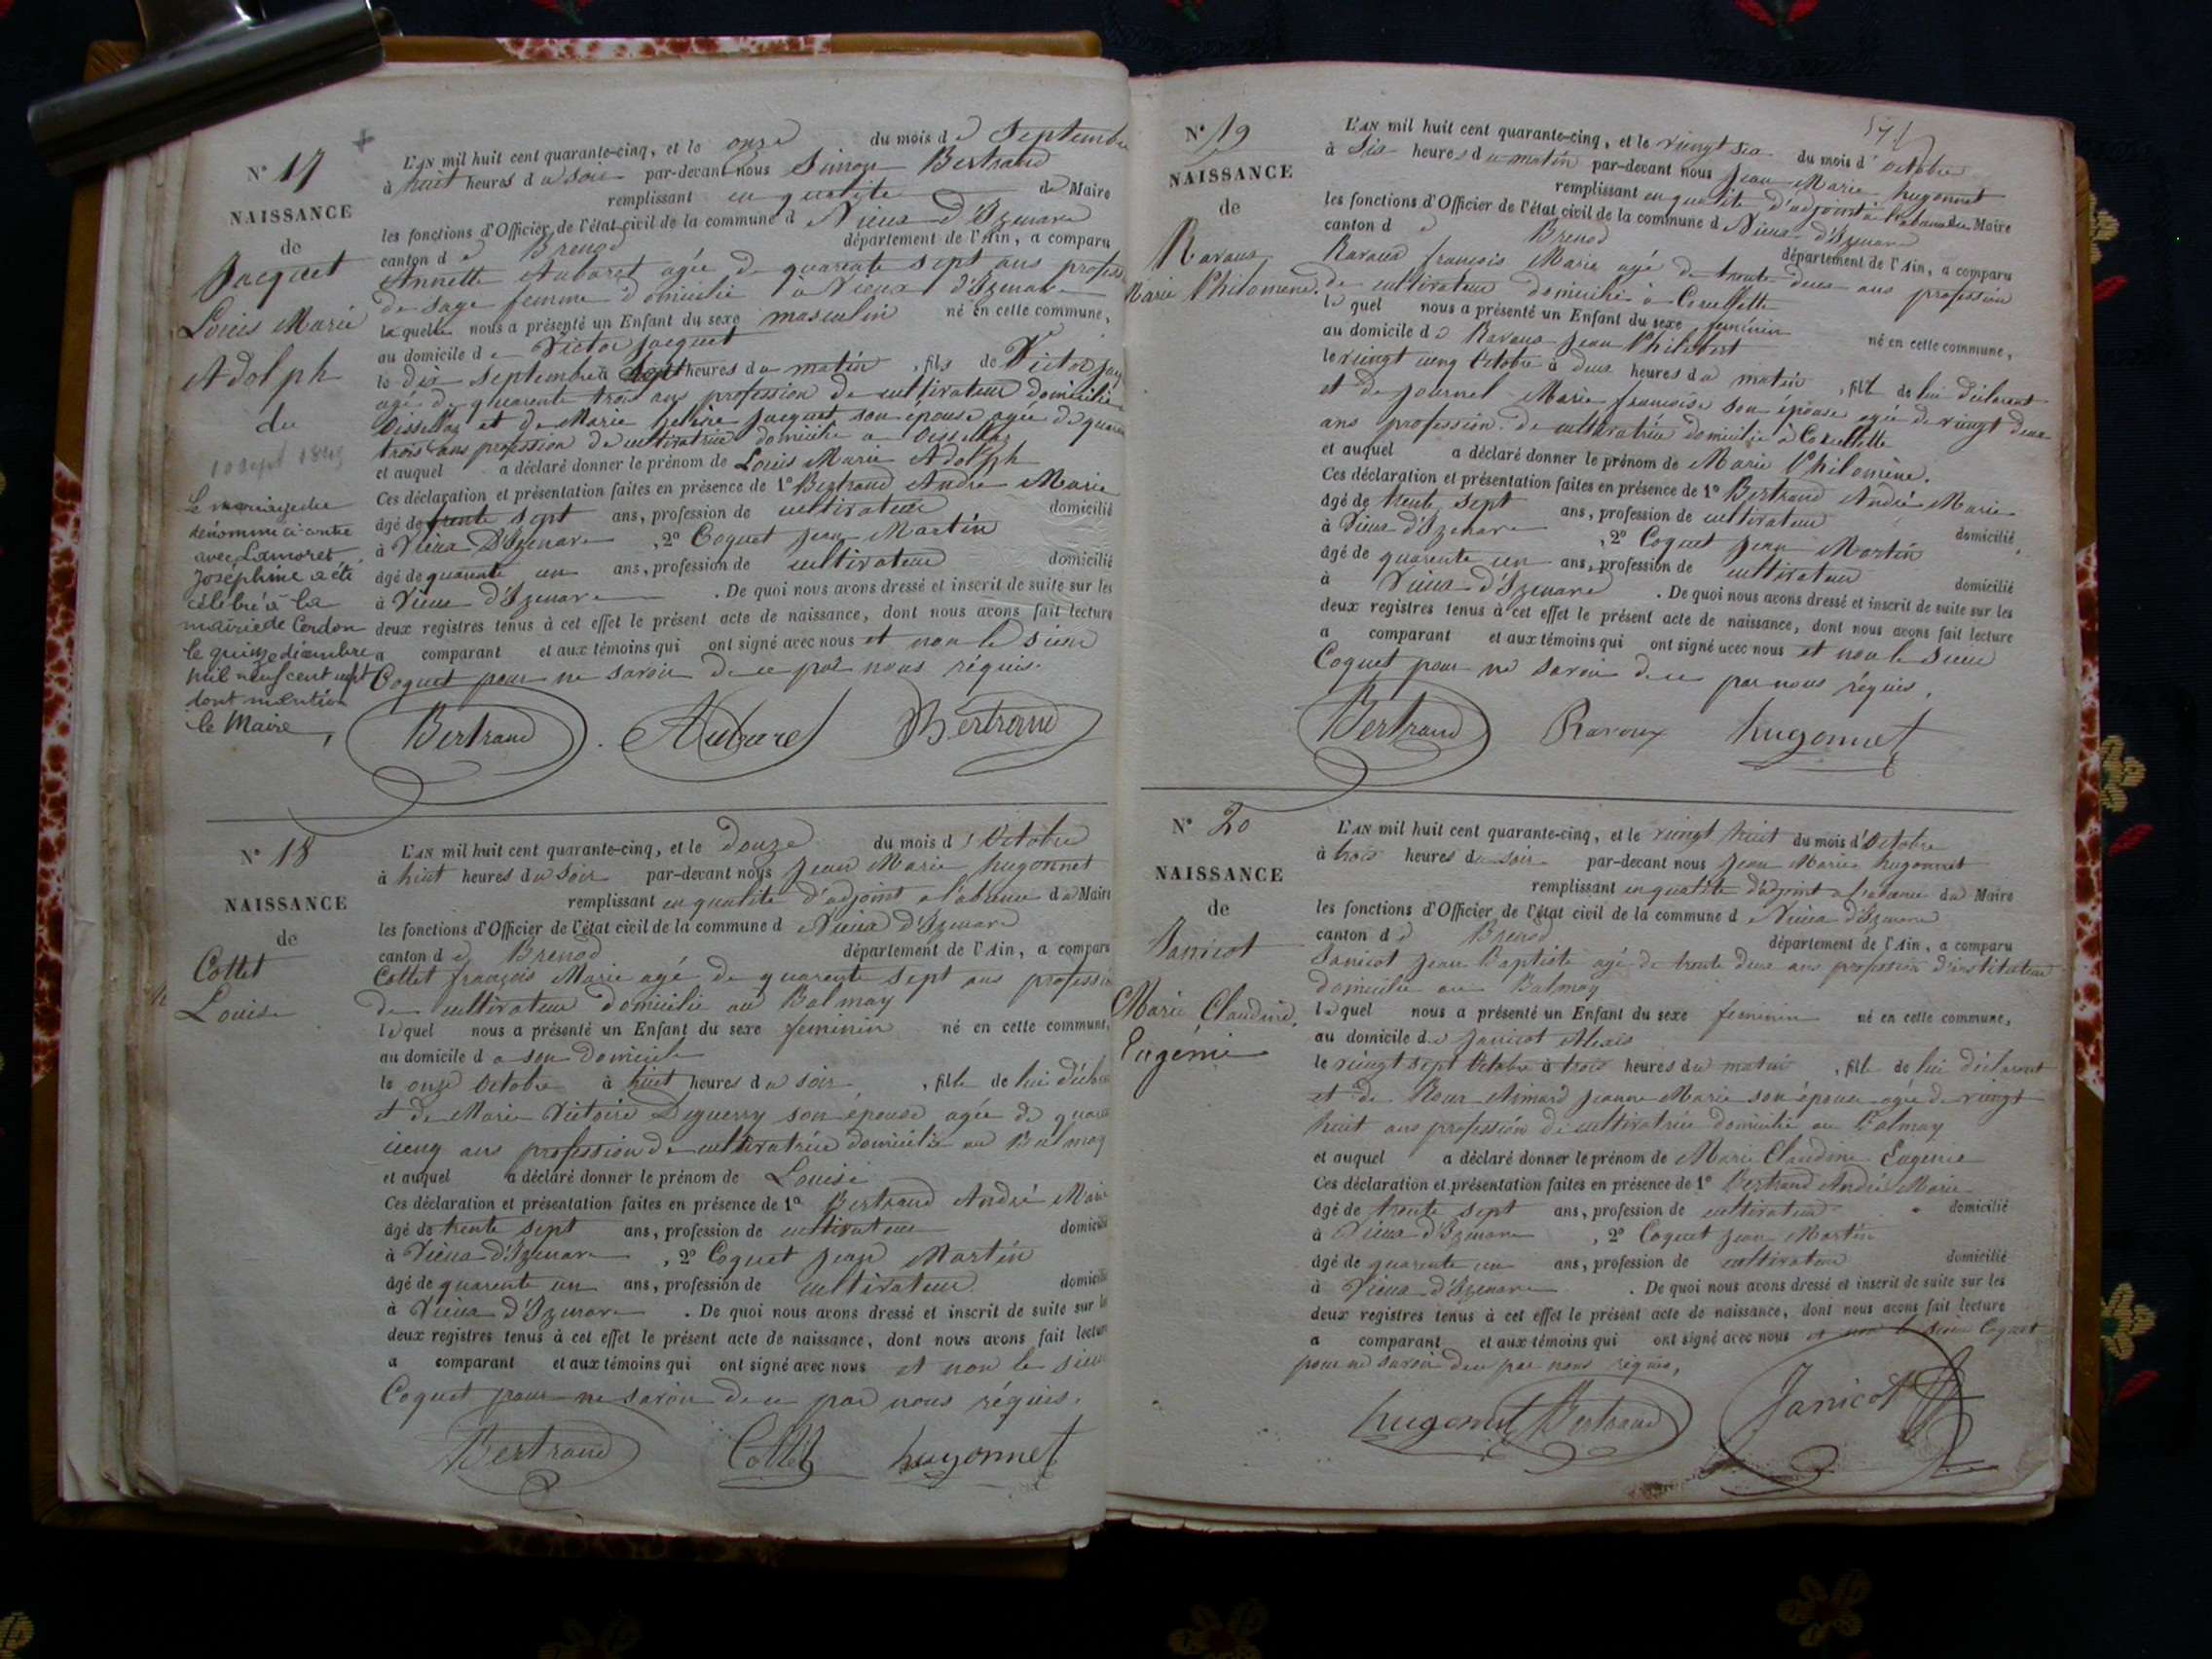 N° 17
NAISSANCE
de
Jacquet
Louis Marie
Adolph
du
10 sept 1845
Le mariage du
dénommé ci contre
avec Lamoret
Joséphine a été
célébré à la
mairie de Cerdon
le quinze décembre
mil neuf cent
dont mention
le Maire,
L'AN mil huit cent quarante-cinq, et le onze du mois de Septembre
à huit heures du soir par-devant nous Simon Bertrand
remplissant en qualité de Maire
les fonctions d'Officier de l'état civil de la commune de Vieux d'Izenave
canton de Brenod département de l'Ain, a comparu
Annette Aubaret agée de quarante sept ans profession
de sage femme domicilié à Vieux d'Izenave
laquelle nous a présenté un Enfant du sexe masculin né en cette commune,
au domicile de Victor Jacquet
le dix Septembre à sept heures du matin, fils de Victor Jacquet
agé de quarente trois ans profession de cultivateur domicilié
Oisselaz et de Marie helène Jacquet son épouse agée de quarante
trois ans profession de cultivatrice domicilié a Oisselaz
et auquel a déclaré donner le prénom de Louis Marie Adolph
Ces déclaration et présentation faites en présence de 1° Bertrand André Marie
âgé de trente sept ans, profession de cultivateur domicilié
à Vieux D'Izenave, 2° Coquet Jean Martin
âgé de quarente un ans, profession de cultivateur domicilié
à Vieux d'Izenave. De quoi nous avons dressé et inscrit de suite sur les
deux registres tenus à cet effet le présent acte de naissance, dont nous avons fait lecture
a comparant et aux témoins qui ont signé avec nous et non le sieur
Coquet pour ne savoir de ce par nous réquis.
Bertrand Aubaret Bertrand
N° 18
NAISSANCE
de
Collet
Louise
L'AN mil huit cent quarante-cinq, et le douze du mois d'Octobre
à huit heures du soir par-devant nous Jean Marie hugonnet
remplissant en qualité d'adjoint a l'absence du Maire
les fonctions d'Officier de l'état civil de la commune de Vieux d'Izenave
canton de Brenod département de l'Ain, a comparu
Collet françois Marie agé de quarente sept ans profession
de cultivateur domicilié au Balmay
lequel nous a présenté un Enfant du sexe feminin né en cette commune,
au domicile d a son domicile
le onze Octobre à huit heures du soir, fille de lui déclarant
et de Marie Victoire Deguerry son épouse agée de quarente
cinq ans profession de cultivatrice domicilié au Balmay
et auquel a déclaré donner le prénom de Louise
Ces déclaration et présentation faites en présence de 1° Bertrand André Marie
âgé de trente sept ans, profession de cultivateur domicilié
à Vieux d'Izenave, 2° Coquet Jean Martin
âgé de quarente un ans, profession de cultivateur domicilié
à Vieux d'Izenave. De quoi nous avons dressé et inscrit de suite sur les
deux registres tenus à cet effet le présent acte de naissance, dont nous avons fait lecture
a comparant et aux témoins qui ont signé avec nous et non le sieur
Coquet pour ne savoir de ce par nous réquis.
Bertrand Collet hugonnet
N° 19
NAISSANCE
de
Ravoux
Marie Philomène.
L'AN mil huit cent quarante-cinq, et le vingt six du mois d'octobre
à Six heures du matin par-devant nous Jean Marie hugonnet
remplissant en qualité d'adjoint a l'absence du Maire
les fonctions d'Officier de l'état civil de la commune de Vieux d'Izenave
canton de Brenod département de l'Ain, a comparu
Ravoux françois Marie agé de trente deux ans profession
de cultivateur domicilié à Corcellette
lequel nous a présenté un Enfant du sexe feminin né en cette commune,
au domicile de Ravoux Jean Philibert
le vingt cinq Octobre à deux heures du matin, fille de lui déclarant
et de Journel Marie françoise son épouse agée de vingt deux
ans profession de cultivatrice domicilié à Corcellette
et auquel a déclaré donner le prénom de Marie Philomène.
Ces déclaration et présentation faites en présence de 1° Bertrand André Marie
âgé de trente sept ans, profession de cultivateur domicilié,
à Vieux d'Izenave, 2° Coquet Jean Martin
âgé de quarente un ans, profession de cultivateur domicilié
à Vieux d'Izenave. De quoi nous avons dressé et inscrit de suite sur les
deux registres tenus à cet effet le présent acte de naissance, dont nous avons fait lecture
a comparant et aux témoins qui ont signé avec nous et non le sieur
Coquet pour ne savoir de ce par nous réquis.
Bertrand Ravoux hugonnet
N° 20
NAISSANCE
de
Janicot
Marie Claudine
Eugenie
L'AN mil huit cent quarante-cinq, et le vingt huit du mois d'Octobre
à trois heures du soir par-devant nous Jean Marie hugonnet
remplissant en qualité d'adjoint a l'absence du Maire
les fonctions d'Officier de l'état civil de la commune de Vieux d'Izenave
canton de Brenod département de l'Ain, a comparu
Janicot Jean Baptiste agé de trente deux ans profession d'instituteur
domicilié au Balmay
lequel nous a présenté un Enfant du sexe feminin né en cette commune,
au domicile de Janicot Alexis
le vingt sept Octobre à trois heures du matin, fille de lui déclarant
et de Roux Aimard Jeanne Marie son épouse agée de vingt
huit ans profession de cultivatrice domicilié au Balmay
et auquel a déclaré donner le prénom de Marie Claudine Eugenie
Ces déclaration et présentation faites en présence de 1° Bertrand André Marie
âgé de trente sept ans, profession de cultivateur domicilié
à Vieux d'Izenave, 2° Coquet Jean Martin
âgé de quarente un ans, profession de cultivateur domicilié
à Vieux d'Izenave. De quoi nous avons dressé et inscrit de suite sur les
deux registres tenus à cet effet le présent acte de naissance, dont nous avons fait lecture
a comparant et aux témoins qui ont signé avec nous et non le sieur Coquet
pour ne savoir de ce par nous réquis,
hugonnet Bertrand Janicot